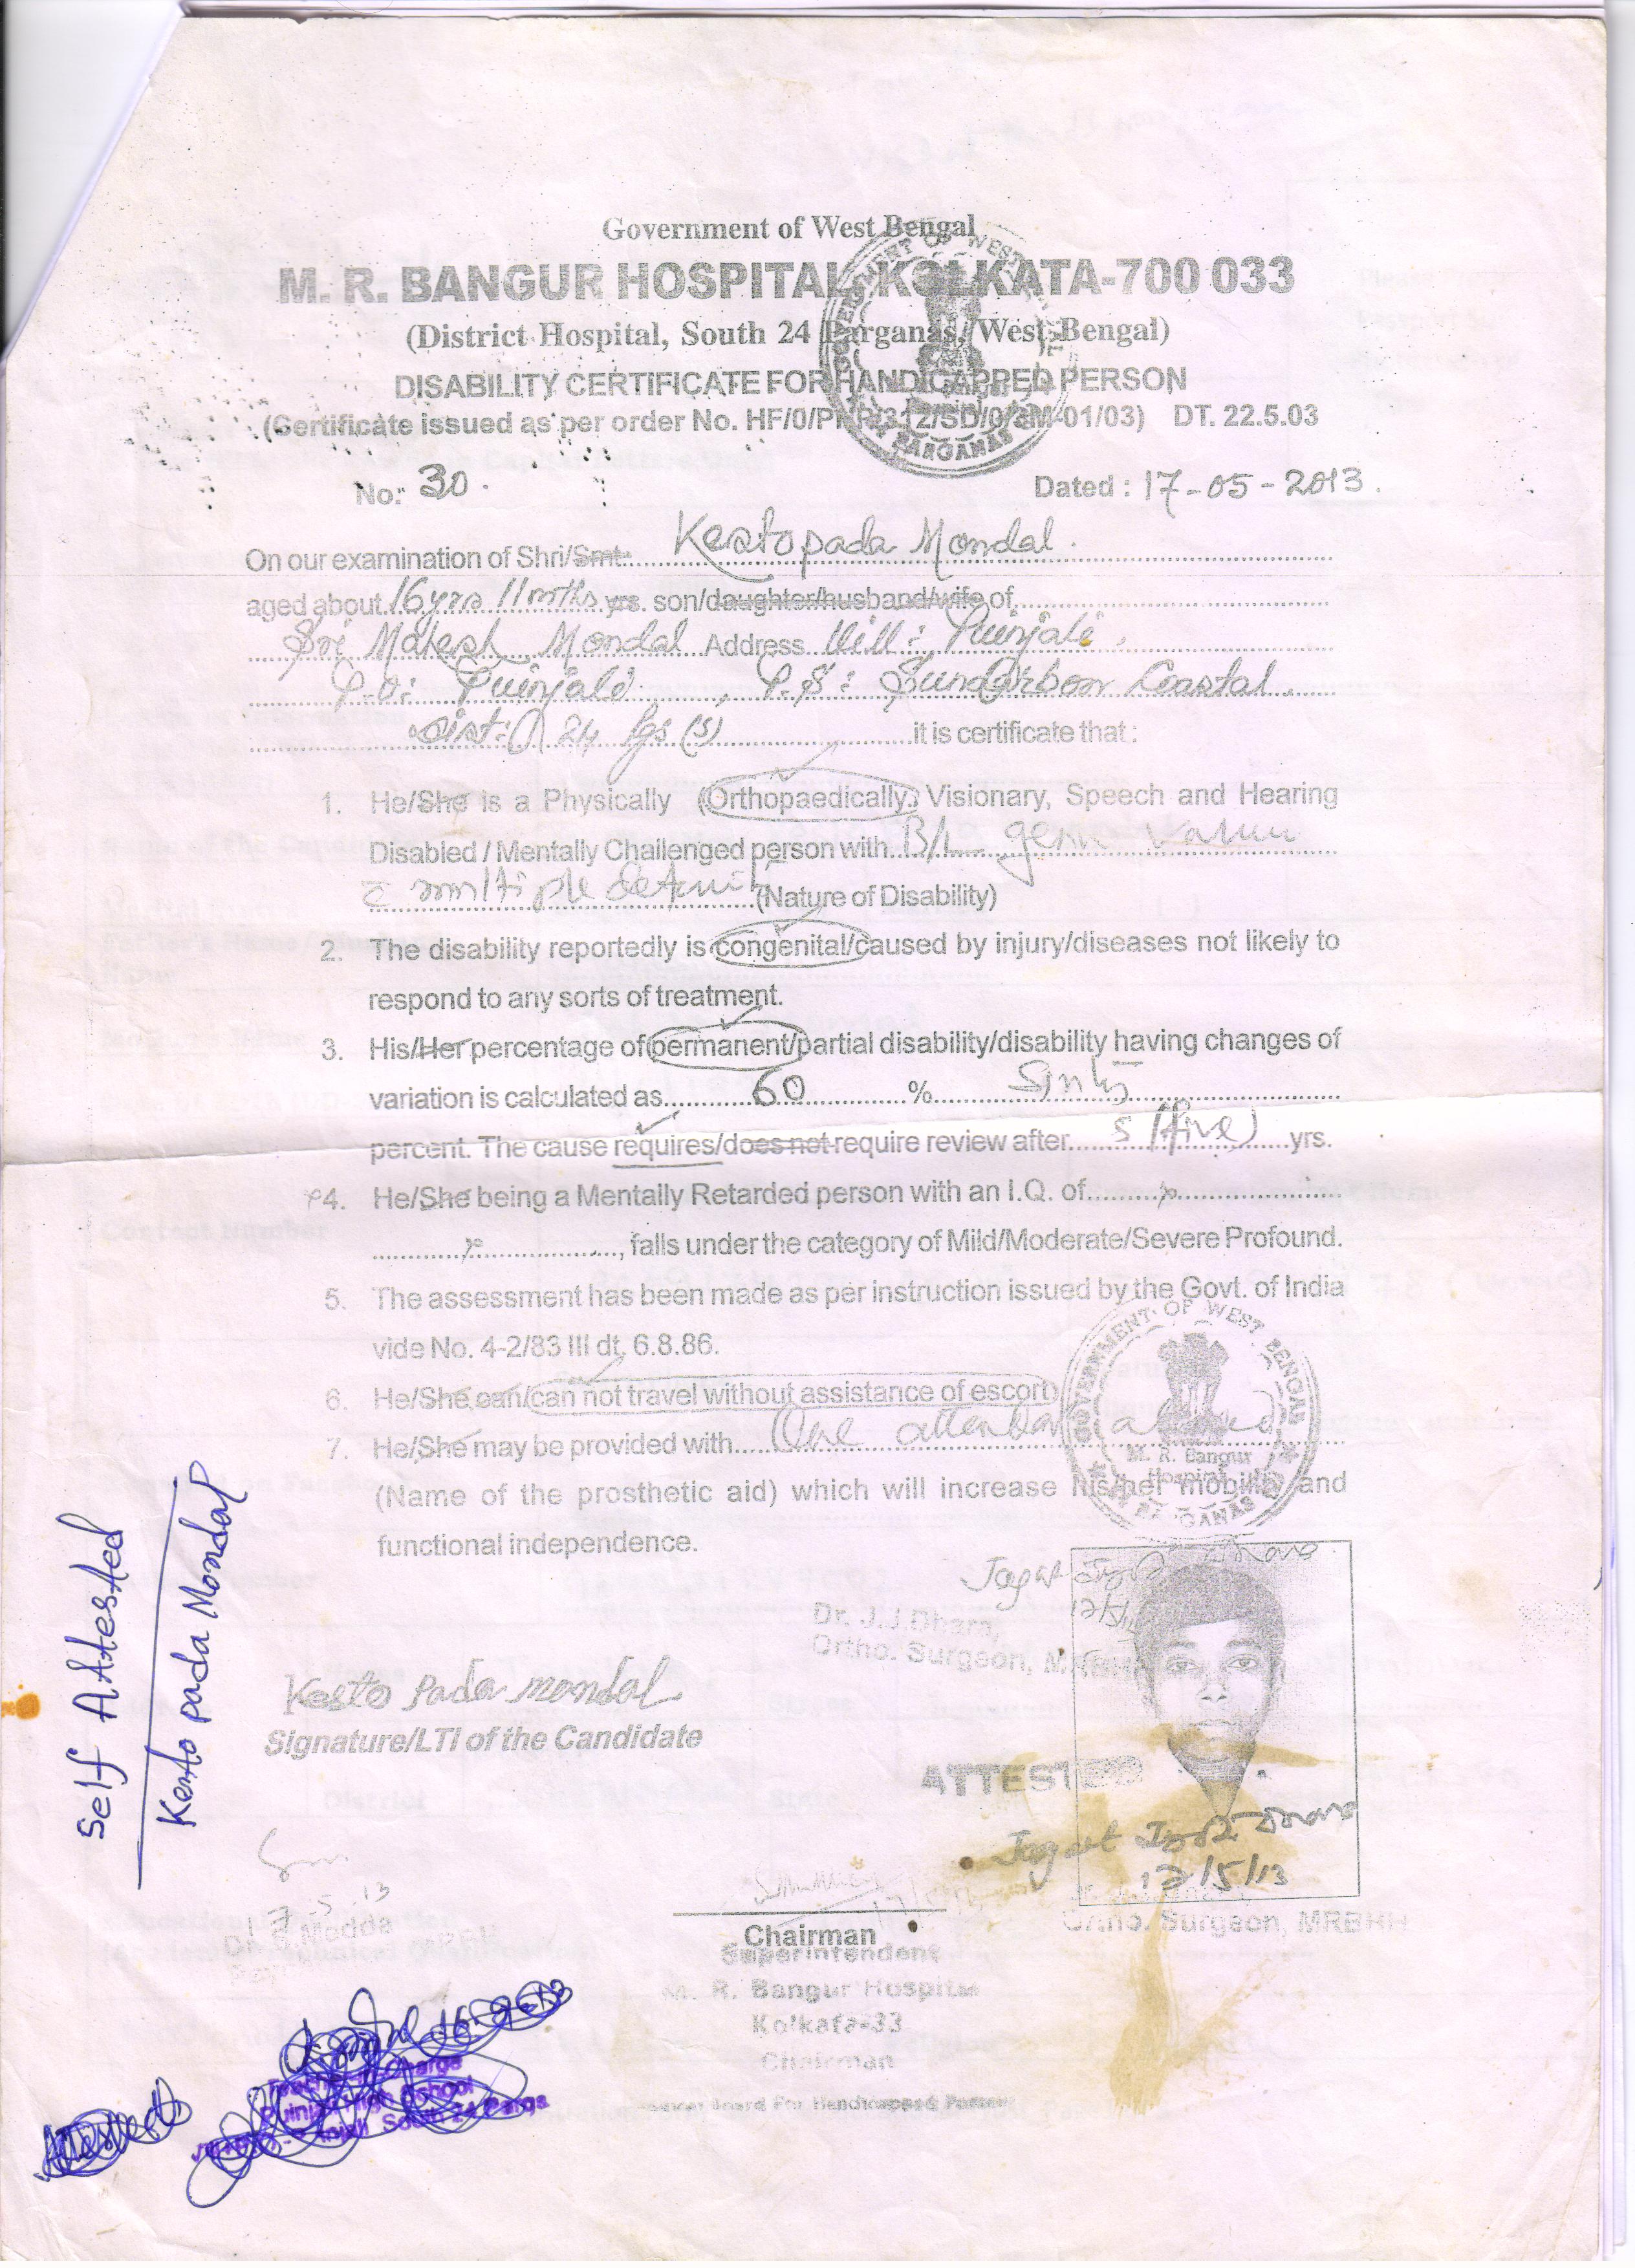 Government of West Bengal
M. R. BANGUR HOSPITAL, KOLKATA-700 033
(District Hospital, South 24 Parganas, West Bengal)
DISABILITY CERTIFICATE FOR HANDICAPPED PERSON
(Certificate issued as per order No. HF/0/PNR/312/SD/0/3M-01/03) DT. 22.5.03
No. 30. Dated : 17-05-2013.
On our examination of Shri/Smt. Kestopada Mondal.
aged about 16yrs 11mths yrs. son/daughter/husband/wife of
Sri Mahesh Mondal Address Vill: Puinjali,
P.O: Puinjali, P.S: Sundarbon Coastal.
Dist: 24 Pgs (S) it is certificate that :
1. He/She is a Physically (Orthopaedically, Visionary, Speech and Hearing
Disabled / Mentally Challenged person with B/L genu
multiple (Nature of Disability)
2. The disability reportedly is congenital/caused by injury/diseases not likely to
respond to any sorts of treatment.
3. His/Her percentage of permanent/partial disability/disability having changes of
variation is calculated as 60 % Sixty
percent. The cause requires/does not require review after 5 (five) yrs.
4. He/She being a Mentally Retarded person with an I.Q. of x
x, falls under the category of Mild/Moderate/Severe Profound.
5. The assessment has been made as per instruction issued by the Govt. of India
vide No. 4-2/83 III dt. 6.8.86.
6. He/She can/can not travel without assistance of escort
7. He/She may be provided with One
(Name of the prosthetic aid) which will increase his/her mobility and
functional independence.
GOVERNMENT OF WEST BENGAL
M. R. Bangur
Hospital
PARGANAS
Dr. J.J.Dhara,
Ortho. Surgeon, MRBHH
Kesto Pada mondal
Signature/LTI of the Candidate
ATTESTED
17/5/13
Ortho. Surgeon, MRBHH
17-5-13
Chairman
Superintendent
M. R. Bangur Hospital
Kolkata-33
Chairman
Board For Handicapped Person
Self Attested
Kesto pada Mondal
High School
South 24 Pargs